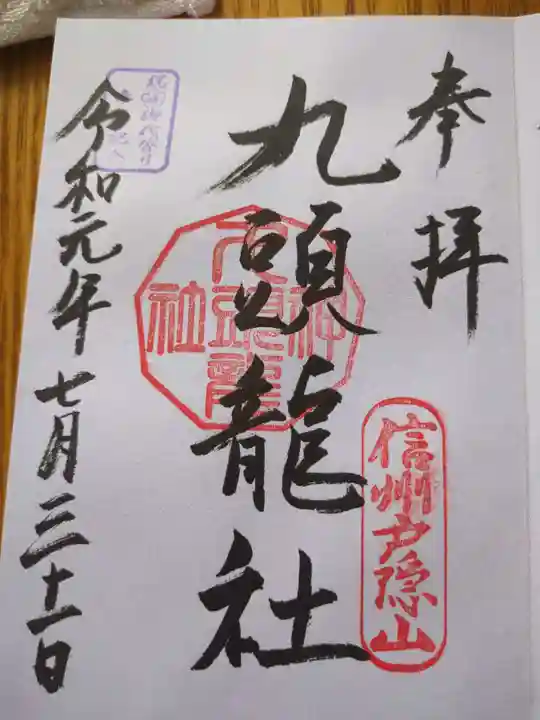 奉拝
信州戸隠山
九頭龍社
九頭龍
神
社
令和元年七月三十一日